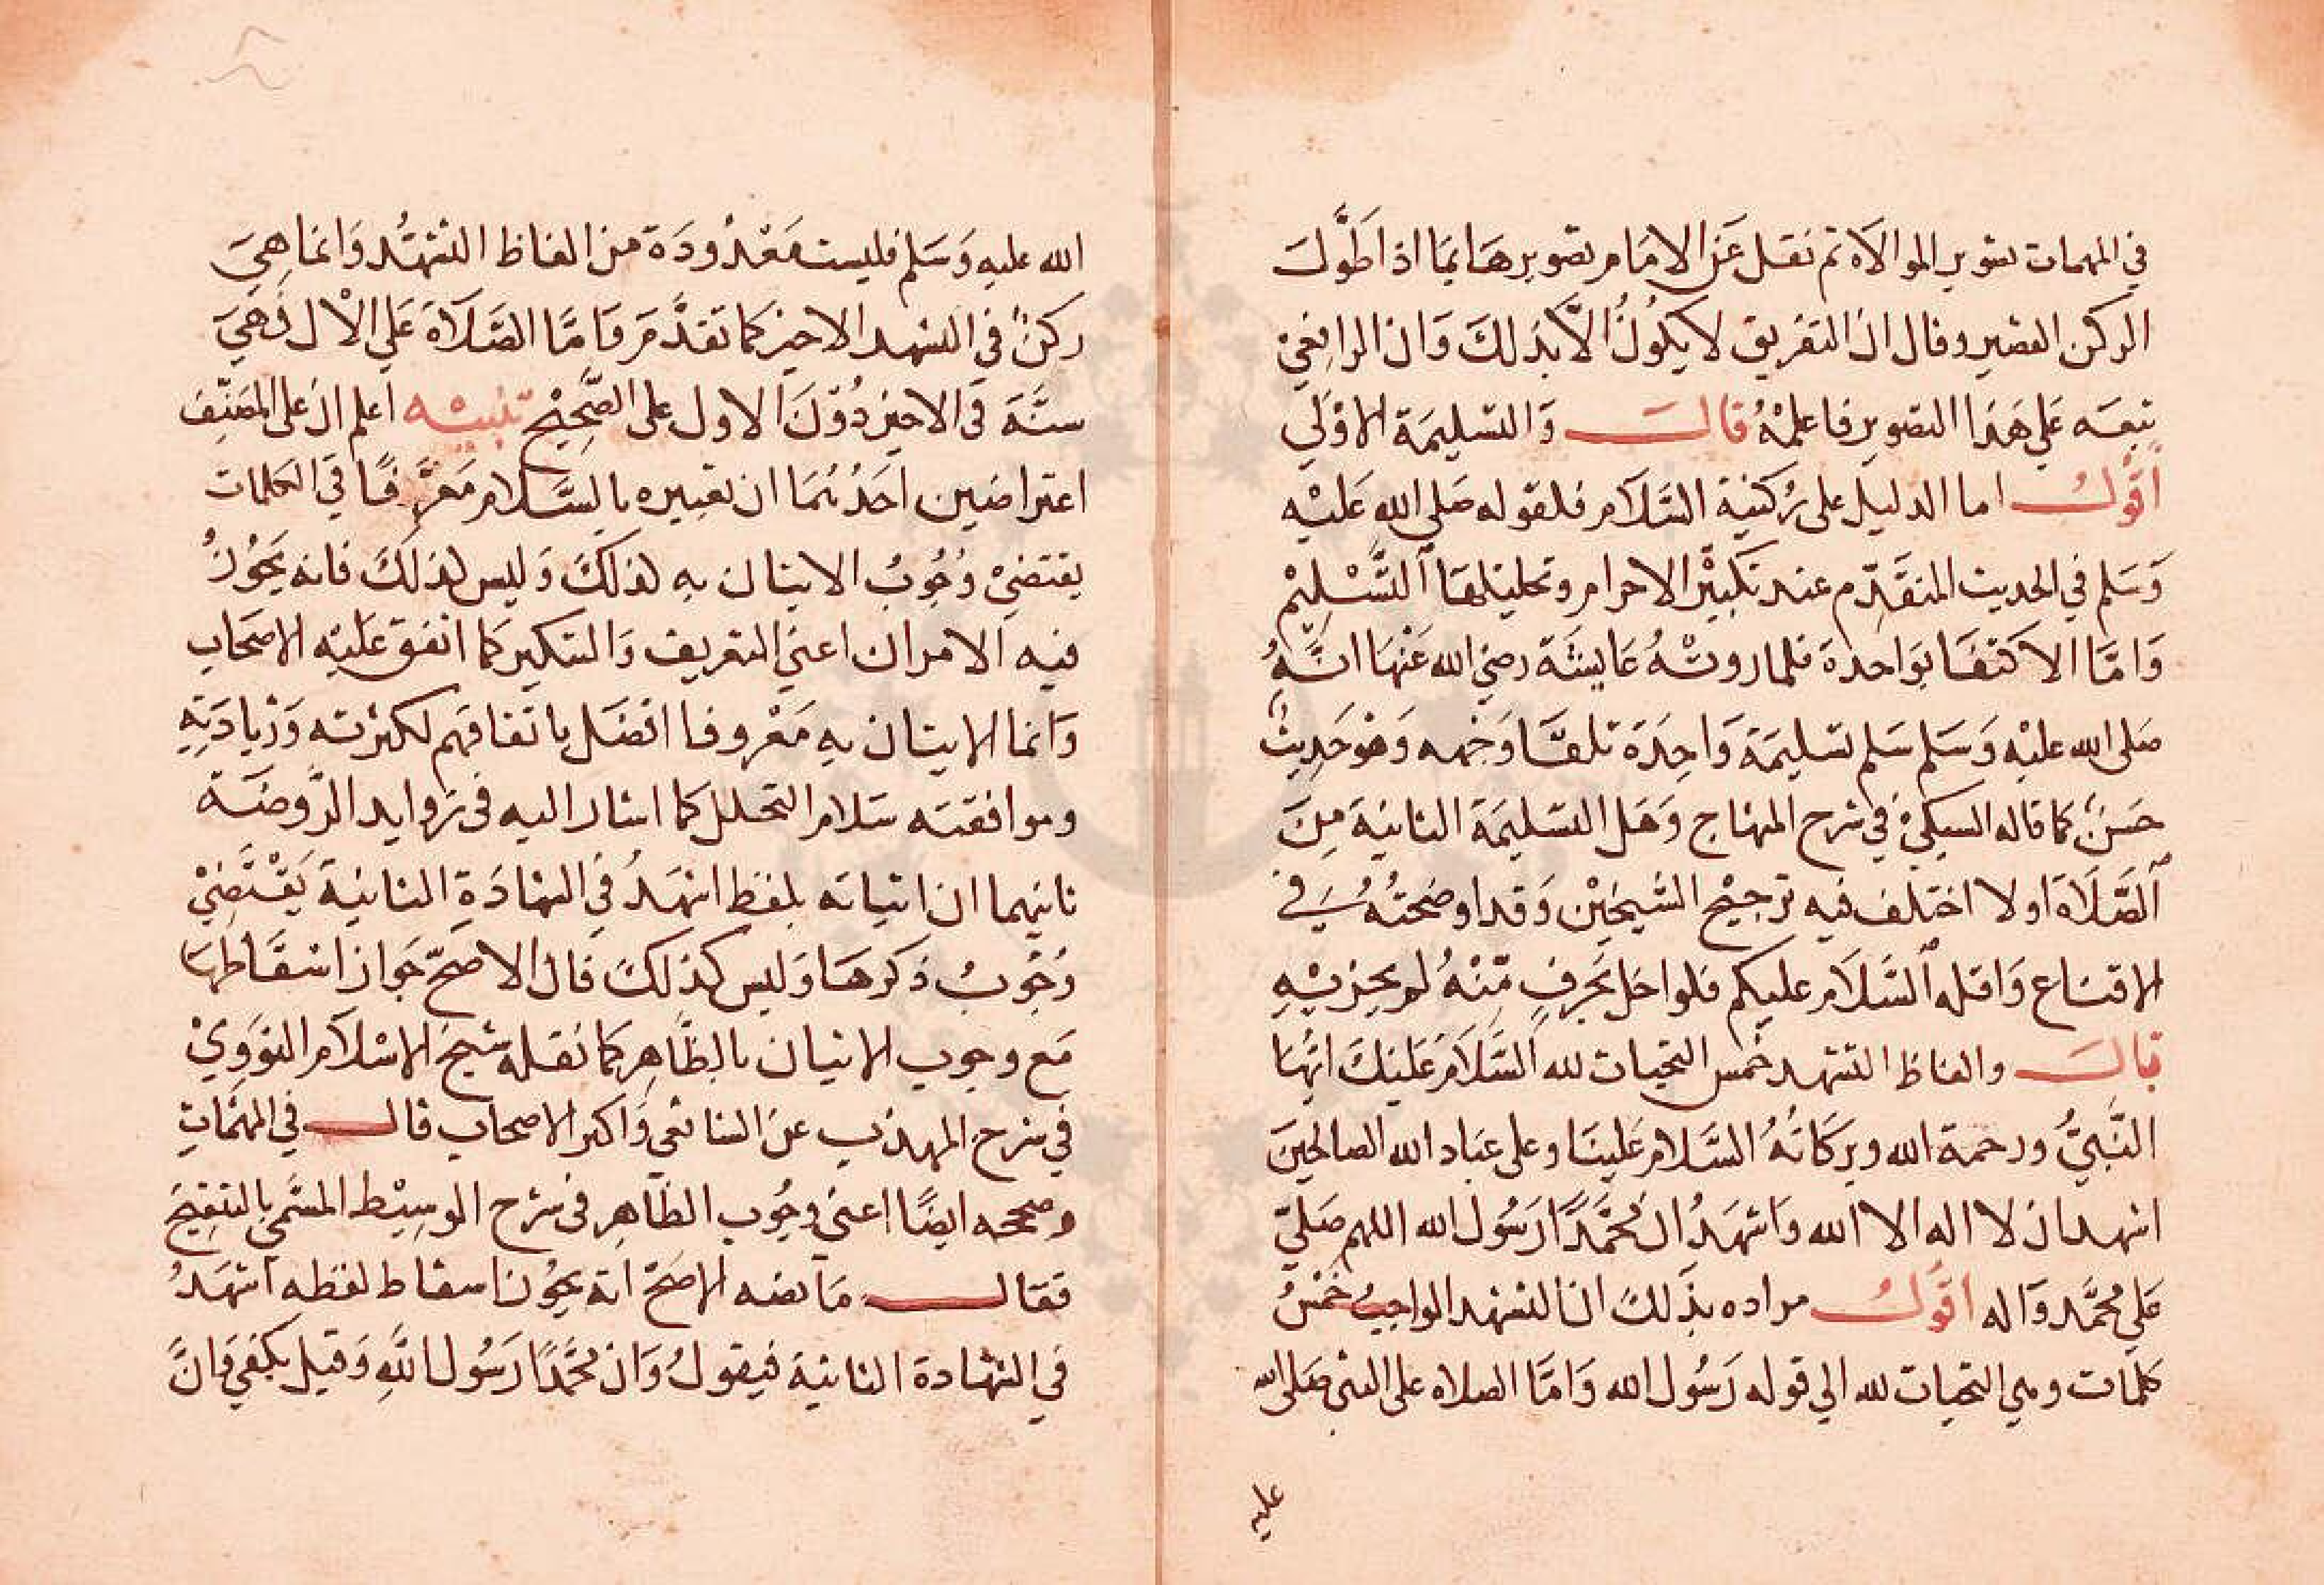 في المهمات تصوير الموالاة ثم نقل عَن الامَام تصويرهَا بمَا اذا طَوَّلَ
الركن القصير وقال ان التفريق لا يكوُنُ الاّ بذلكَ وَان الرافِعيْ
تبعَه عَلي هَذا التصوير فاعلمْهُ قالَ وَالتسليمَة الاوْلَي
اقوُلُ اما الدليل على رُكنية السَّلاَم فلقوله صَلى الله عَليْه
وَسَلم في الحديث المتقَدِّم عند تكبيْرِ الاحرام وتحليلهَا التَّسْليْم
وَامَّا الاكتفَا بوَاحدة فلما روتْهُ عَايشَة رضي الله عَنْهَا انَّهُ
صَلى الله عليْه وَسَلم سَلم تسَليمَة وَاحِدَة تلقَّا وَجْهه وَهوَ حَدِيثٌ
حَسَنٌ كما قاله السبكيْ في شرح المنهَاج وَهَل التسَليمَة الثانيَة مِنَ
الصَّلاَة او لا اختلف فيه ترجيْح الشيخيْن وَقد اوضحتُهُ فيْ
الاقتناع وَاقله السَّلاَم عليكم فلو اخل بحَرفٍ مّنْهُ لم يجزيْهِ
قالَ والفاظ التشهد خمس التحيات لله السَّلاَمُ عَليْكَ ايُّهَا
النَّبيُّ ورحمَة الله وبرَكاتهُ السَّلام عَلينَا وعلى عبَاد الله الصالحِينَ
اشهد ان لا اله الا الله وَاشهَدُ ان مُحَّمَدًا رَسُول الله اللهم صَليّ
عَلي مُحمَّد وَاله اقوُلُ مراده بذَلكَ ان التشهد الواجبُ خمْسُ
كلمَات وهي التحيات لله الي قوله رَسُول الله وَامَّا الصلاه على النبي صَلى الله
عليه
الله عليه وَسَلم فليست مَعْدُودَة من الفاظ التشهُّد وَانما هِيَ
ركنٌ في التشهد الاخير كما تقدَّمَ وَامَّا الصَّلاَة عَلي الاْل فَهيَ
سنَّة في الاخير دُوْنَ الاول على الصَّحِيْح تنبيْه اعلم ان على المصَنِّف
اعتراضَين احَدُهُمَا ان تعبيره بالسَّلام مَعَرَّفًا في الكلمات
يقتضيْ وُجُوبُ الاتيَان بهِ كذلكَ وَليس كذلكَ فانه يَجُوْزُ
فيْه الامران اعنيَ التعريف وَالتنكير كما اتفق عَليْه الاصحَاب
وَانما الاتيَان بهِ مَعْروفا افضَل باتفاقهم لكثرته وَزْيادَتِهِ
وموافقتَه سَلام التحلل كما اشار اليه في زوايد الرَّوضَة
ثانيهما ان اتيانَه بلفظ اشهَدُ في الشهَادَةِ الثانيَة يَقْتَضِيْ
وُجُوبُ ذكرهَا وَليس كذلكَ فان الاصَحّ جَوَاز اسْقاطهَا
مَع وجوب الاتيان بالظّاهِر كما نقله شيخ الاسْلاَم النوَوِيْ
في شرح المهذب عن الشافعي وَاكثر الاصحاب قالـ في المهمَّاتِ
وصححه ايضًا اعني وجُوب الظاهِر في شرْح الوسِيْط المسَّمي بالتنقِيْح
فقالـ مَا نصَه الاصَحّ انه يجوُز اسقاط لفظه اشهَدُ
في الشَّهَادة الثانيَة فيقولُ وَان مُحمَّدًا رَسُول اللهِ وَقيل يكفي وَانَّ